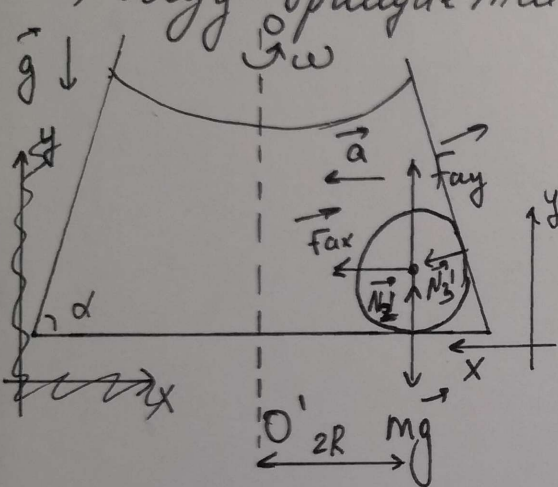 O
ω
g
y
a
Fay
Fax
N2'
N3'
y
α
x
x
O'
2R
mg